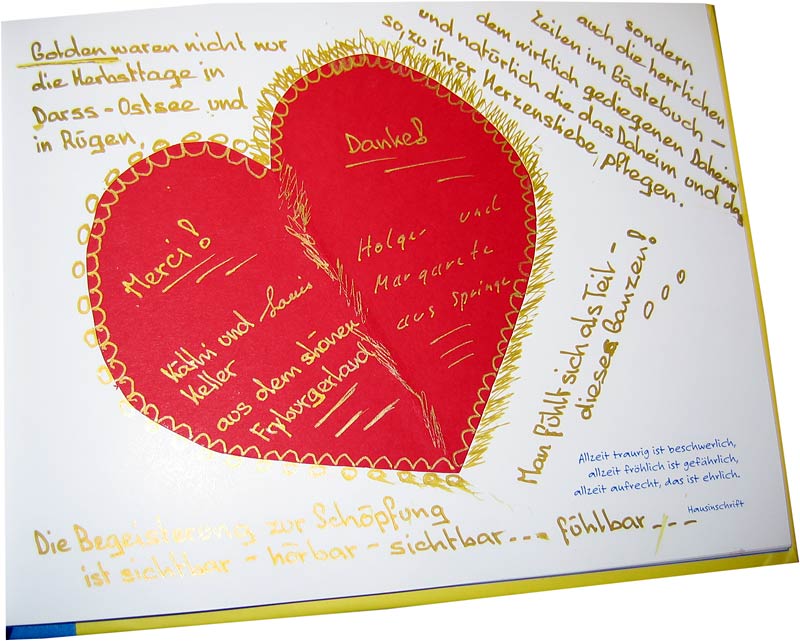 Golden waren nicht nur
die Herbsttage in
Darss-Ostsee und
in Rügen,
sondern
auch die herrlichen
Zeilen im Gästebuch –
dem wirklich gediegenen Daheim
und natürlich die, das Daheim und das
so, zu ihrer Herzensliebe, pflegen.
Merci!
Käthi und Louis
Keller
aus dem shönen
Fryburgerland
Danke!
Holger und
Margarete
aus Springe
Man fühlt sich als Teil –
dieses Ganzen!
Allzeit traurig ist beschwerlich,
allzeit fröhlich ist gefährlich,
allzeit aufrecht, das ist ehrlich.
Hausinschrift
Die Begeisterung zur Schöpfung
ist sichtbar – hörbar – sichtbar --- fühlbar ---